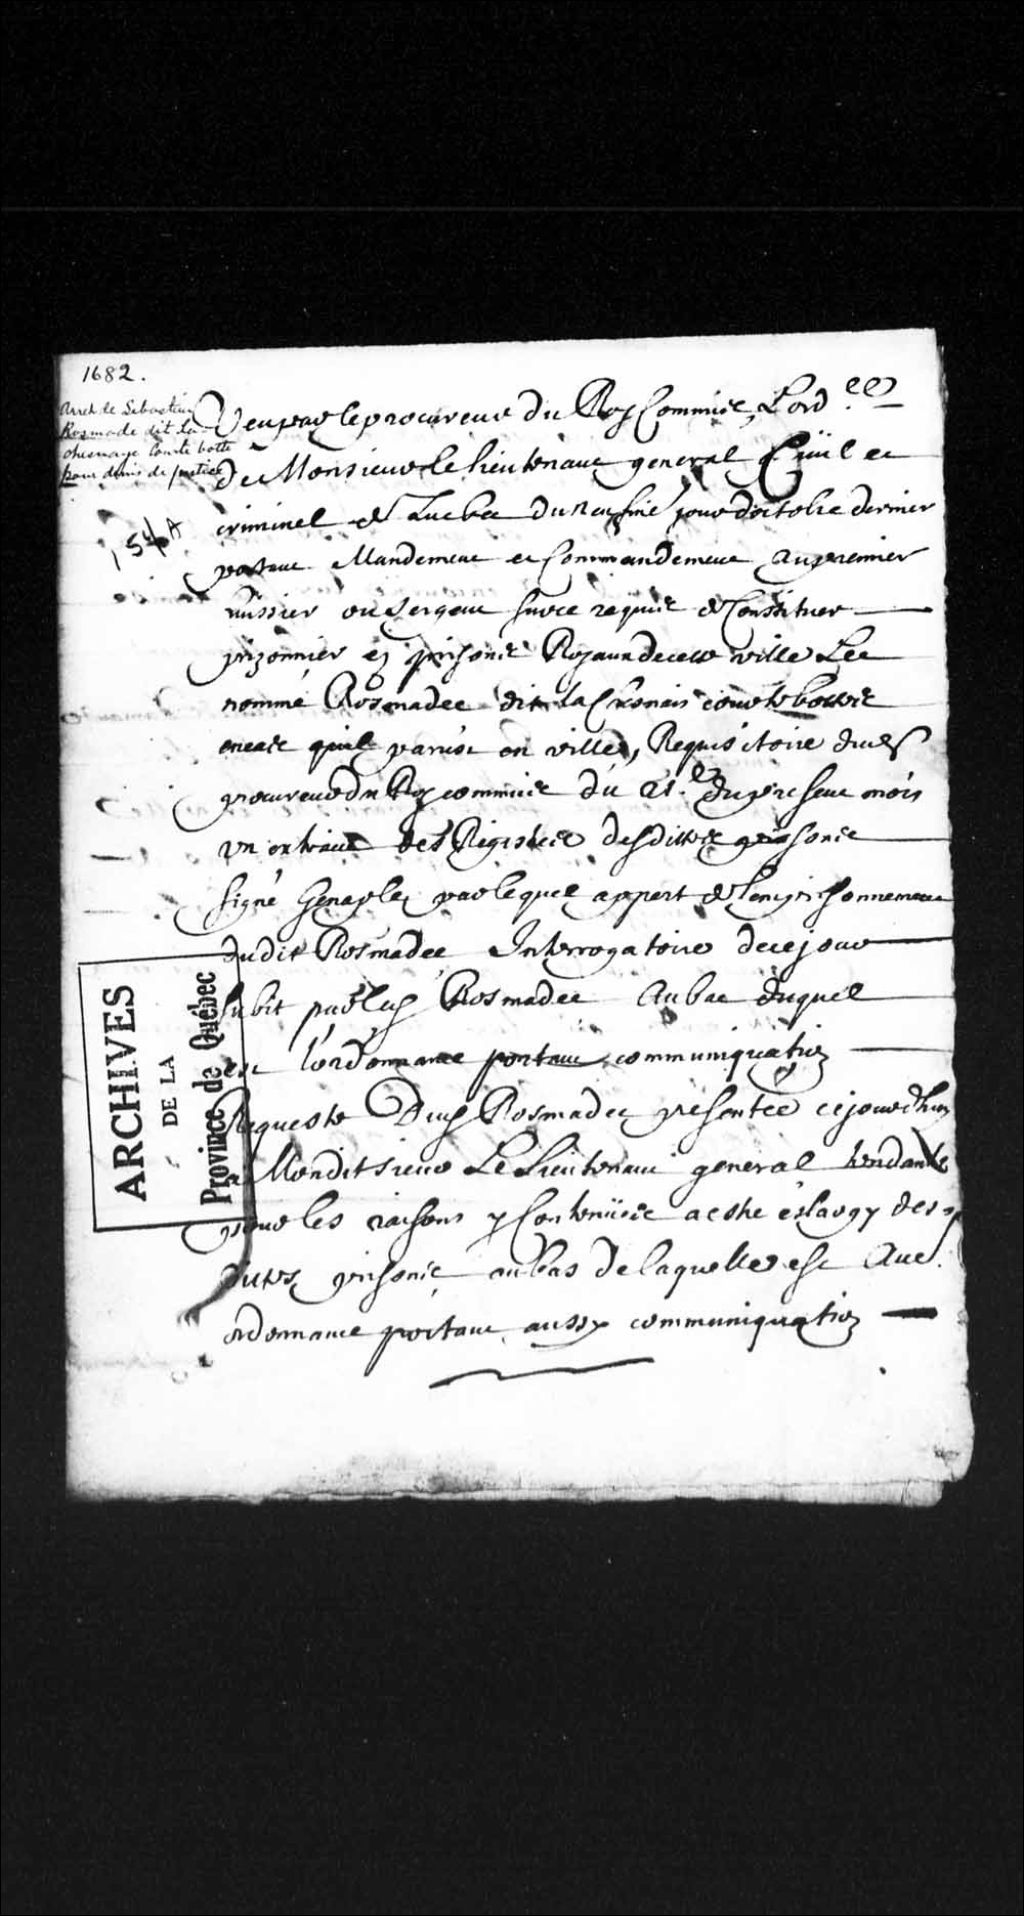 1682.
Arrest de Sebastien
Rosmade dit la
courte botte
pour denis de justice
154 A
Veu par le procureur du Roy Commis, Lord.ce
de Monsieur le lieutenant general Civil et
criminel de Quebec du neufiie jour doctobre dernier
portant Mandement et Commandement au premier
huissier ou sergent sur ce requis de Constituer
prizonnier es prisons Royaux de cette ville Le
nommé Rosmadec dit la courte botte
en cas quil parust en ville, Requisitoire dud
procureur du Roy commis du 21.e du present mois
un extrait des Registres desdittes prisons
signé Genaple par lequel appert de lemprisonnement
dudit Rosmadec Interrogatoire de ce jour
subit par led Rosmadec Au bas duquel
est l'ordonnance portant communiquation
Requeste Dud Rosmadec presentée ce jourdhuy
a Mondit sieur Le Lieutenant general tendante
pour les raisons y Contenües a estre eslargy des
dites prisons au bas de laquelle est
ordonnance portant aussy communiquation
ARCHIVES
DE LA
Province de Québec